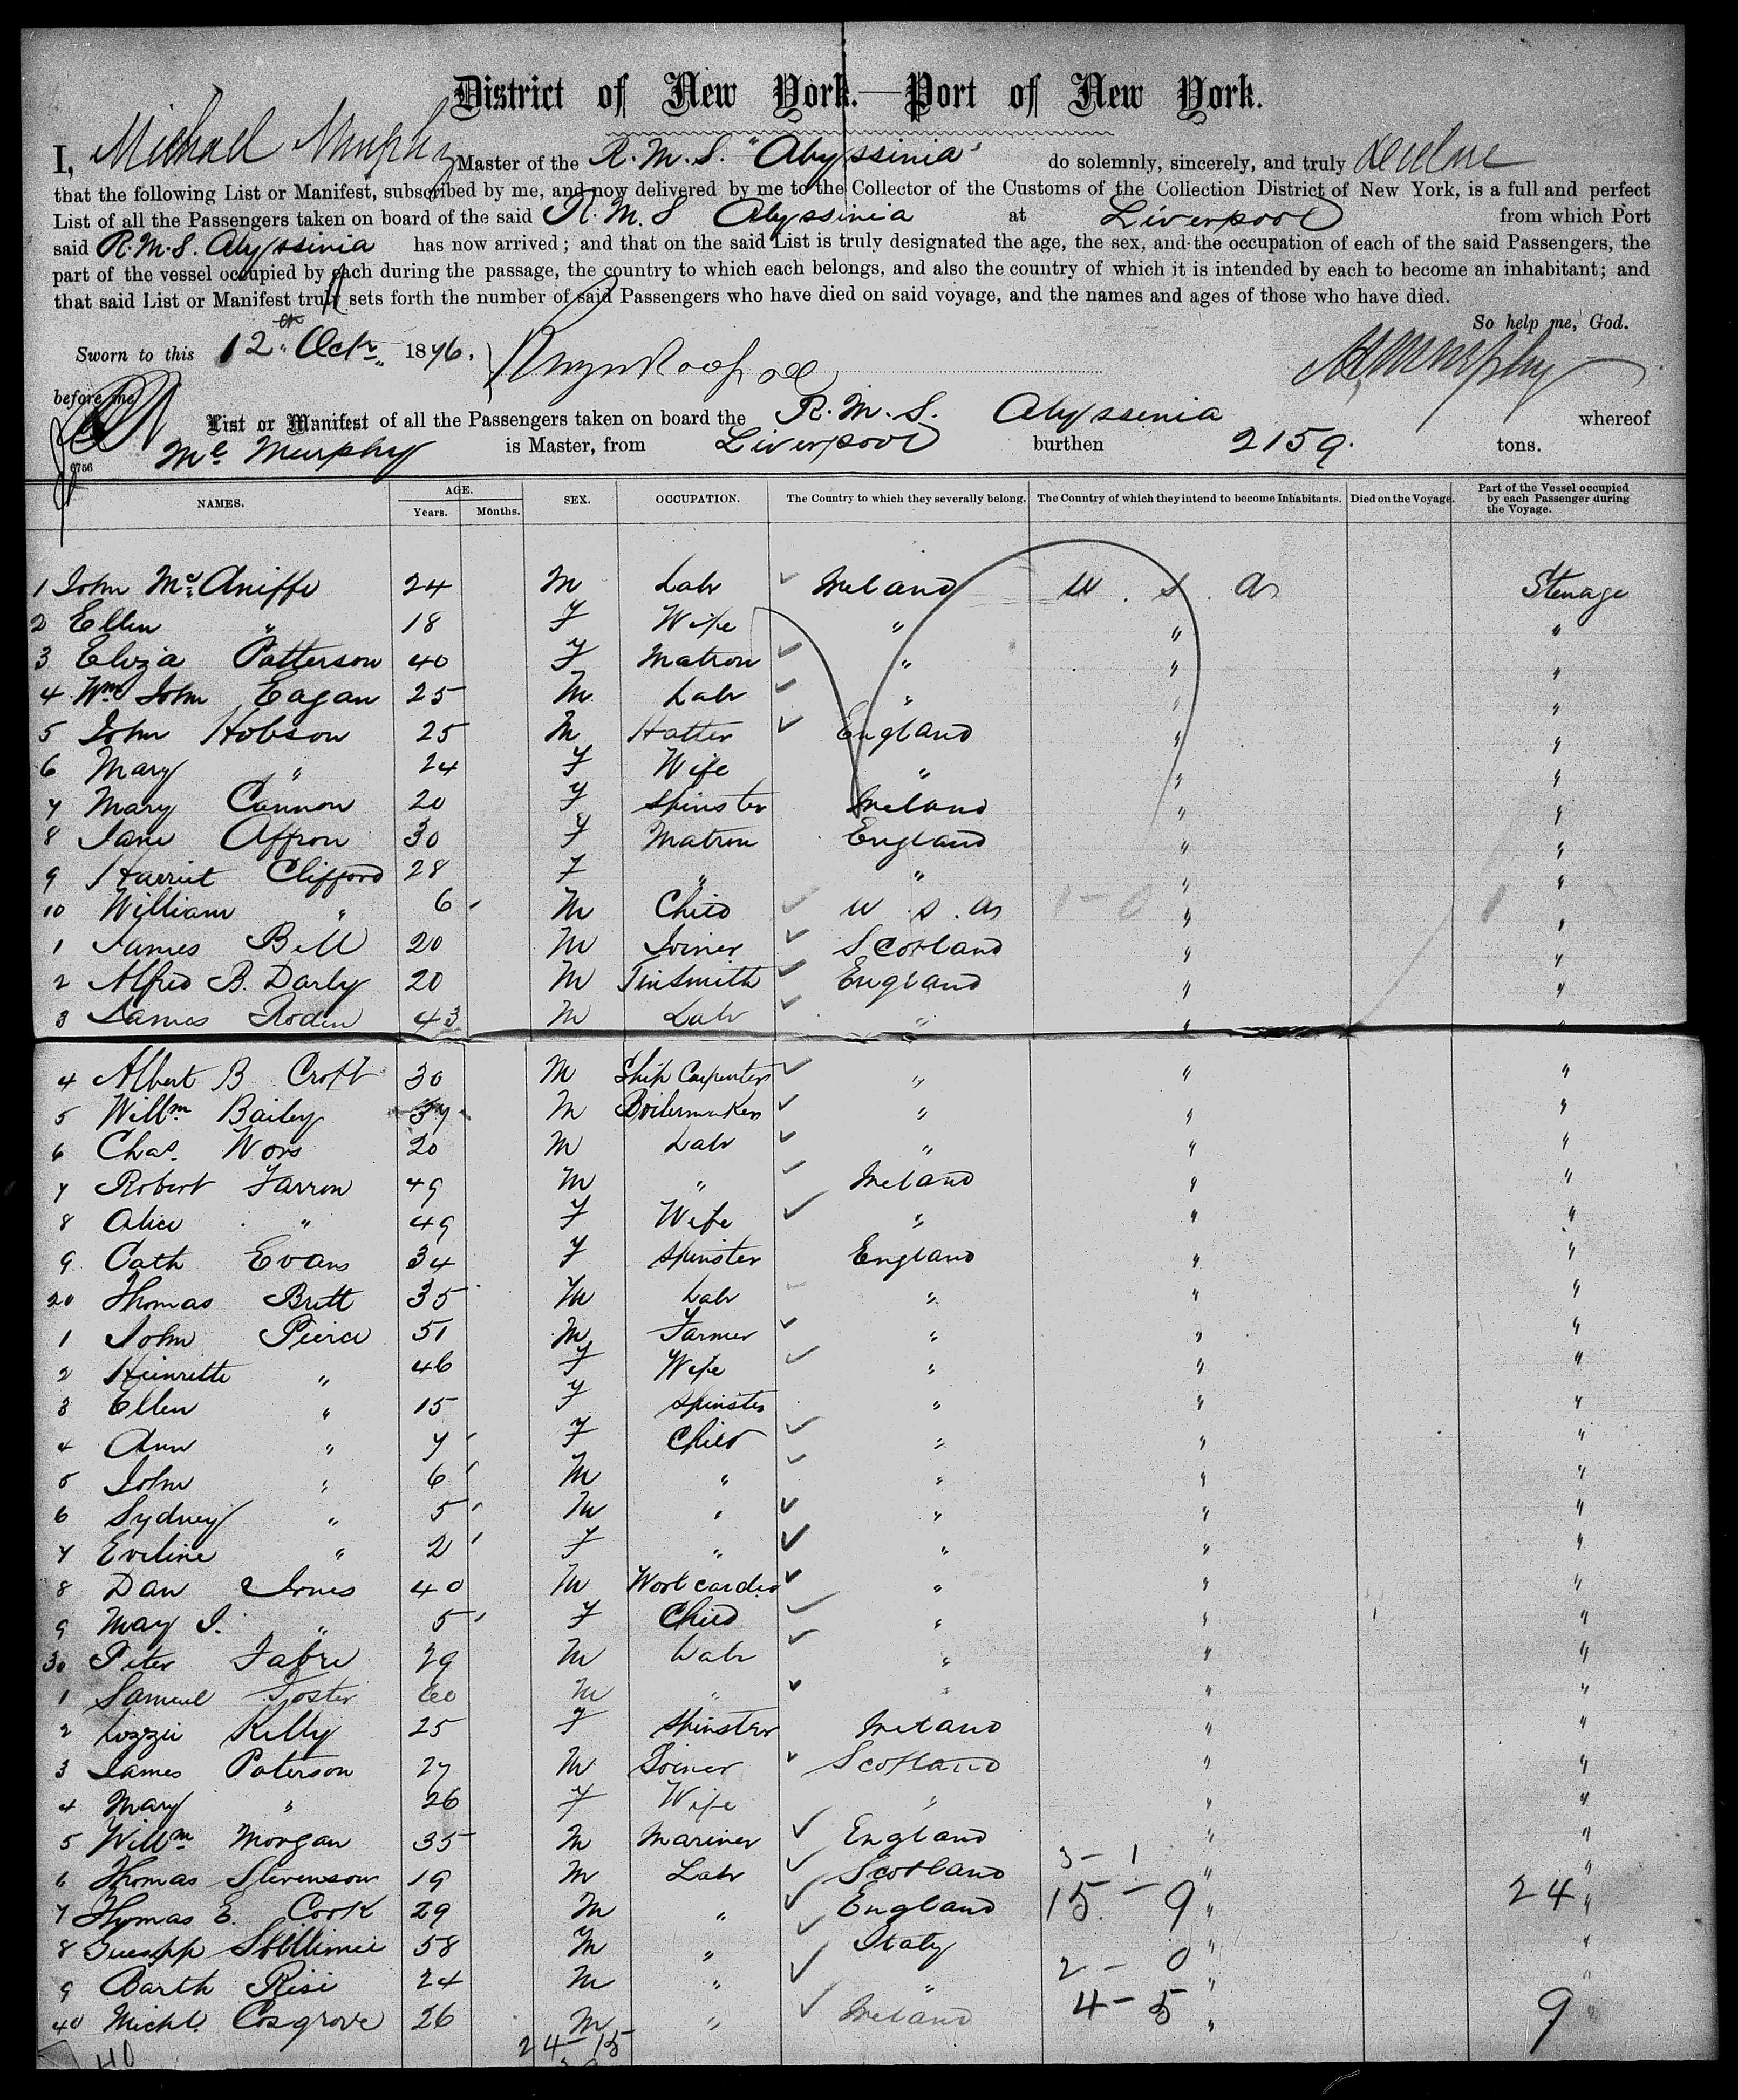 District of New York.—Port of New York.
I, Michael Murphy Master of the R.M.S. "Abyssinia" do solemnly, sincerely, and truly declare
that the following List or Manifest, subscribed by me, and now delivered by me to the Collector of the Customs of the Collection District of New York, is a full and perfect
List of all the Passengers taken on board of the said R.M.S Abyssinia at Liverpool from which Port
said R.M.S. Abyssinia has now arrived; and that on the said List is truly designated the age, the sex, and the occupation of each of the said Passengers, the
part of the vessel occupied by each during the passage, the country to which each belongs, and also the country of which it is intended by each to become an inhabitant; and
that said List or Manifest truly sets forth the number of said Passengers who have died on said voyage, and the names and ages of those who have died.
So help me, God.
Sworn to this 12th Octr. 1876. M Murphy
before me
List or Manifest of all the Passengers taken on board the R.M.S. Abyssinia whereof
Ml Murphy is Master, from Liverpool burthen 2159. tons.
6756
NAMES. AGE. Years. Months. SEX. OCCUPATION. The Country to which they severally belong. The Country of which they intend to become Inhabitants. Died on the Voyage. Part of the Vessel occupied by each Passenger during the Voyage.
1 John McAniffe 24 M Labr Ireland U.S.A Steerage
2 Ellen " 18 F Wife " " "
3 Eliza Patterson 40 F Matron " " "
4 Wm John Eagan 25 M Labr " " "
5 John Hobson 25 M Hatter England " "
6 Mary " 24 F Wife " " "
7 Mary Cannon 20 F Spinster Ireland " "
8 Jane Affron 30 F Matron England " "
9 Harriet Clifford 28 F " " " "
10 William " 6 M Child U.S.A 1-0 " "
1 James Bell 20 M Joiner Scotland " "
2 Alfred B. Darly 20 M Tinsmith England " "
3 James Rodin 43 M Labr " " "
4 Albert B Croft 30 M Ship Carpenter " " "
5 Willm Bailey 37 M Boilermaker " " "
6 Chas. Wors 20 M Labr " " "
7 Robert Farron 49 M " Ireland " "
8 Alice " 49 F Wife " " "
9 Cath Evans 34 F Spinster England " "
20 Thomas Britt 35 M Labr " " "
1 John Pierce 51 M Farmer " " "
2 Heinrette " 46 F Wife " " "
3 Ellen " 15 F Spinster " " "
4 Ann " 7 F Child " " "
5 John " 6 M " " " "
6 Sydney " 5 M " " " "
7 Eveline " 2 F " " " "
8 Dan Jones 40 M Wool carder " " "
9 May J. " 5 F Child " " "
30 Peter Fabre 29 M Labr " " "
1 Samuel Foster 60 M " " " "
2 Lizzie Kelly 25 F Spinster Ireland " "
3 James Paterson 27 M Joiner Scotland " "
4 Mary " 26 F Wife " " "
5 Willm Morgan 35 M Mariner England " "
6 Thomas Stevenson 19 M Labr Scotland 3-1 " "
7 Thomas E. Cook 29 M " England 15-9 " 24 "
8 58 M " Italy " "
9 Barth Risi 24 M " " 2-0 " "
40 Michl. Cosgrove 26 M " Ireland 4-5 " 9 "
40 24-15